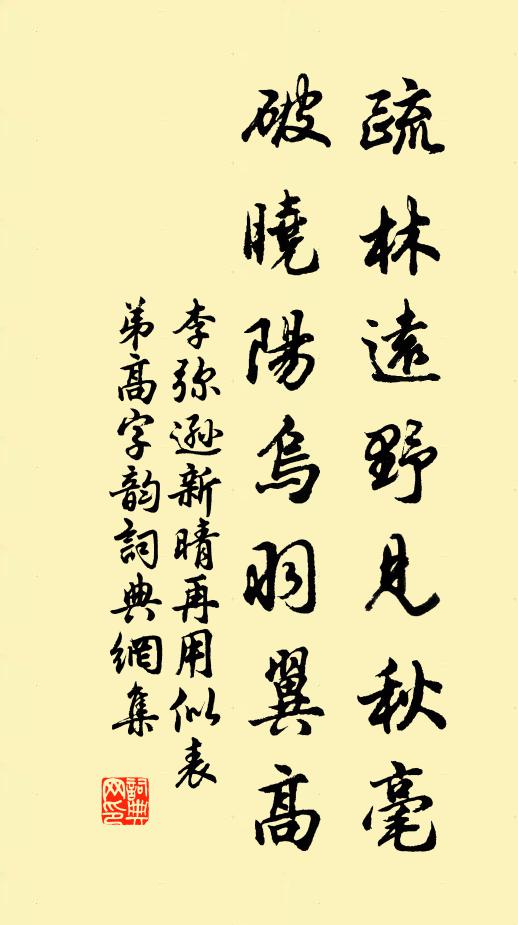 疏林遠野見秋毫
破曉陽烏羽翼高
李弥遜新晴再用似表
弟高字韵詞典網集
詞典網印